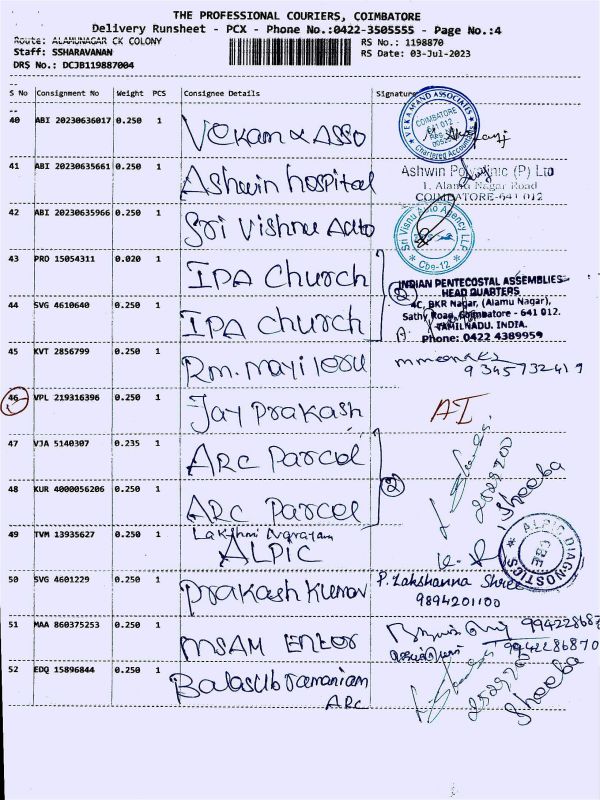 THE PROFESSIONAL COURIERS, COIMBATORE
Delivery Runsheet - PCX - Phone No.:0422-3505555 - Page No.:4
Route: ALAMUNAGAR CK COLONY
RS No.: 1198870
Staff: SSHARAVANAN
RS Date: 03-Jul-2023
DRS No.: DCJB119887004
S No Consignment No Weight PCS Consignee Details Signature
40 ABI 20230636017 0.250 1 Vekam & Asso
VEKAMAND ASSOCIATES
COIMBATORE
641 012
Chartered Accountants
41 ABI 20230635661 0.250 1 Ashwin hospital
Ashwin Polyclinic (P) Ltd
1, Alamu Nagar Road
COIMBATORE-641 012
42 ABI 20230635966 0.250 1 Sri Vishnu Auto
Sri Visnu Auto Agency LLP
Cbe-12
43 PRO 15054311 0.020 1 IPA Church
INDIAN PENTECOSTAL ASSEMBLIES
HEAD QUARTERS
4C, BKR Nagar, (Alamu Nagar),
Sathy Road, Coimbatore - 641 012.
TAMILNADU. INDIA.
Phone: 0422 4389959
2
44 SVG 4610640 0.250 1 IPA Church
45 KVT 2856799 0.250 1
9345732419
46 VPL 219316396 0.250 1 Jay Prakash
AI
47 VJA 5140307 0.235 1 ARC Parcel
2
2529200
Sheeba
48 KUR 4000056206 0.250 1 ARC Parcel
49 TVM 13935627 0.250 1 Lakshmi Narayam
ALPIC
ALPIC DIAGNOSTICS
CBE
50 SVG 4601229 0.250 1 Prakash Kumar
P. Lakshanna Shree
9894201100
51 MAA 860375253 0.250 1 MSAM Enter
9942286870
52 EDQ 15896844 0.250 1 Balasubramaniam
ARC
2529200
Sheeba